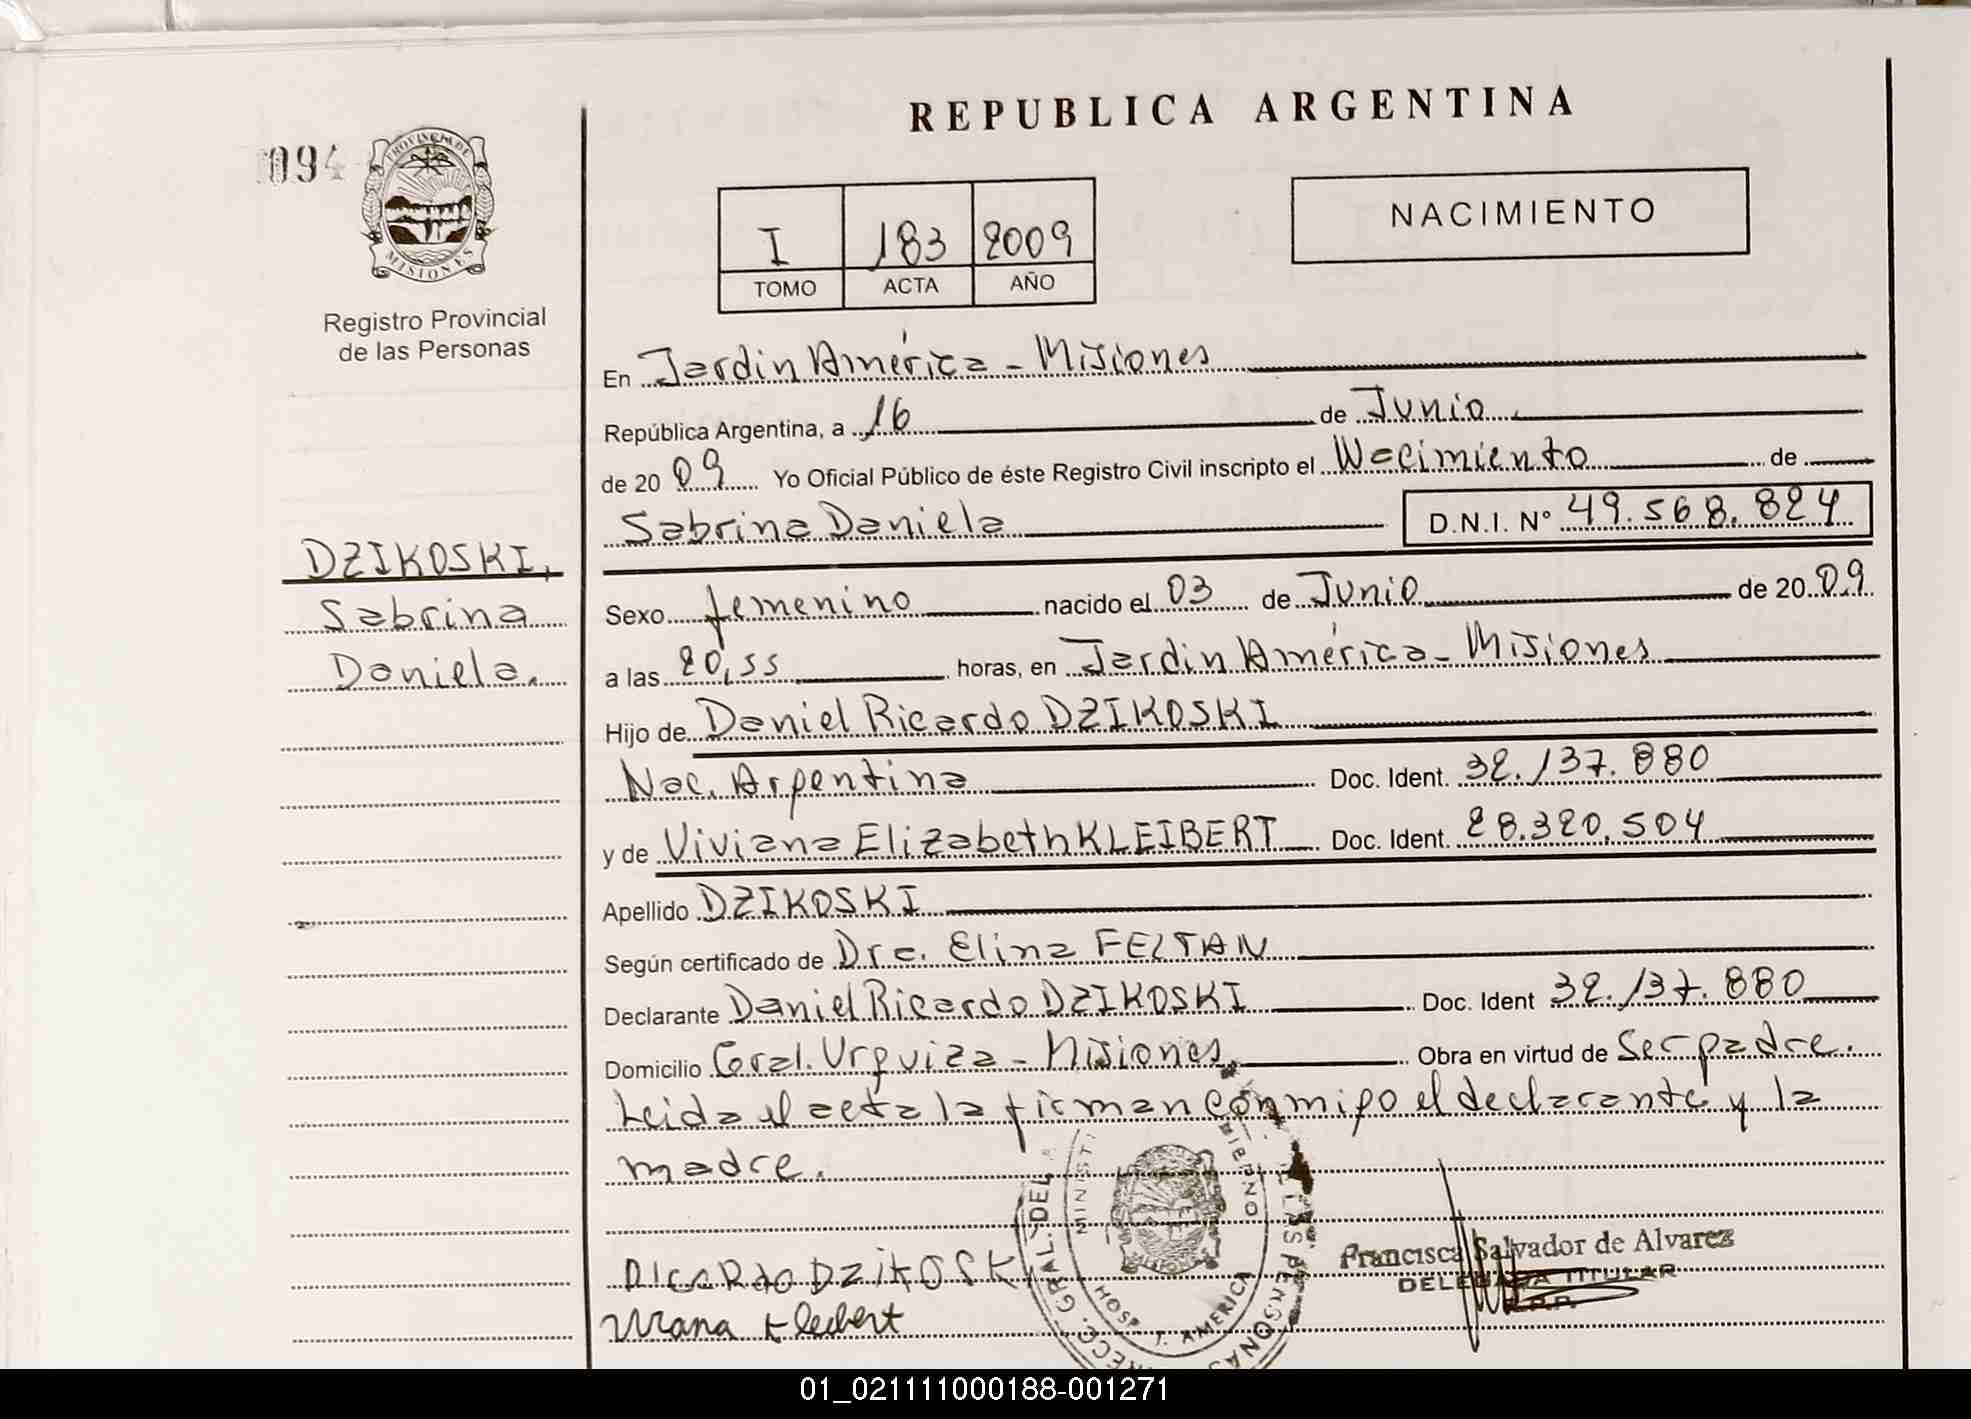 REPUBLICA ARGENTINA
094
PROVINCIA DE
MISIONES
Registro Provincial
de las Personas
I 183 2009
TOMO ACTA AÑO
NACIMIENTO
En Jardin América - Misiones
República Argentina, a 16 de Junio
de 2009 Yo Oficial Público de éste Registro Civil inscripto el Nacimiento de
Sabrina Daniela D.N.I. Nº 49.568.824
DZIKOSKI,
Sabrina
Daniela.
Sexo femenino nacido el 03 de Junio de 2009
a las 20,55 horas, en Jardin América - Misiones
Hijo de Daniel Ricardo DZIKOSKI
Nac. Argentina Doc. Ident. 32.137.880
y de Viviana Elizabeth KLEIBERT Doc. Ident. 28.320.504
Apellido DZIKOSKI
Según certificado de Dra. Elina FELTAN
Declarante Daniel Ricardo DZIKOSKI Doc. Ident 32.137.880
Domicilio Gral. Urquiza - Misiones Obra en virtud de Ser padre.
Leida el acta la firman conmigo el declarante y la
madre.
RICARDO DZIKOSKI
Kleibert
DIRECC. GRAL. DEL
PERSONAS
MINIST
HOSP. J. AMERICA
Francisca Salvador de Alvarez
DELEGADA TITULAR
R.P.P.
01_021111000188-001271